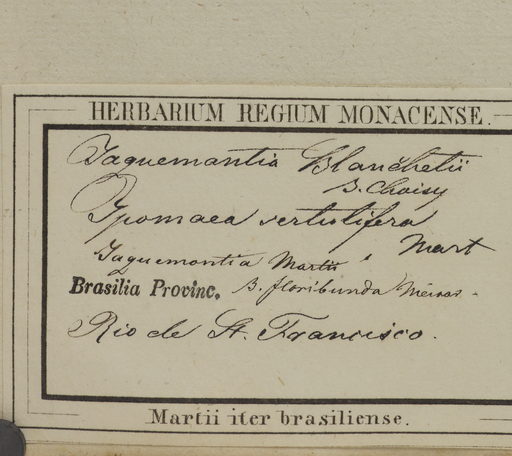 HERBARIUM REGIUM MONACENSE.
Jaquemantia Blanchetii
B. Choisy
Ipomaea sertulifera
Mart
Jaquemontia Martii
Brasilia Provinc. B. floribunda Meisn.
Rio de St. Francisco.
Martii iter brasiliense.